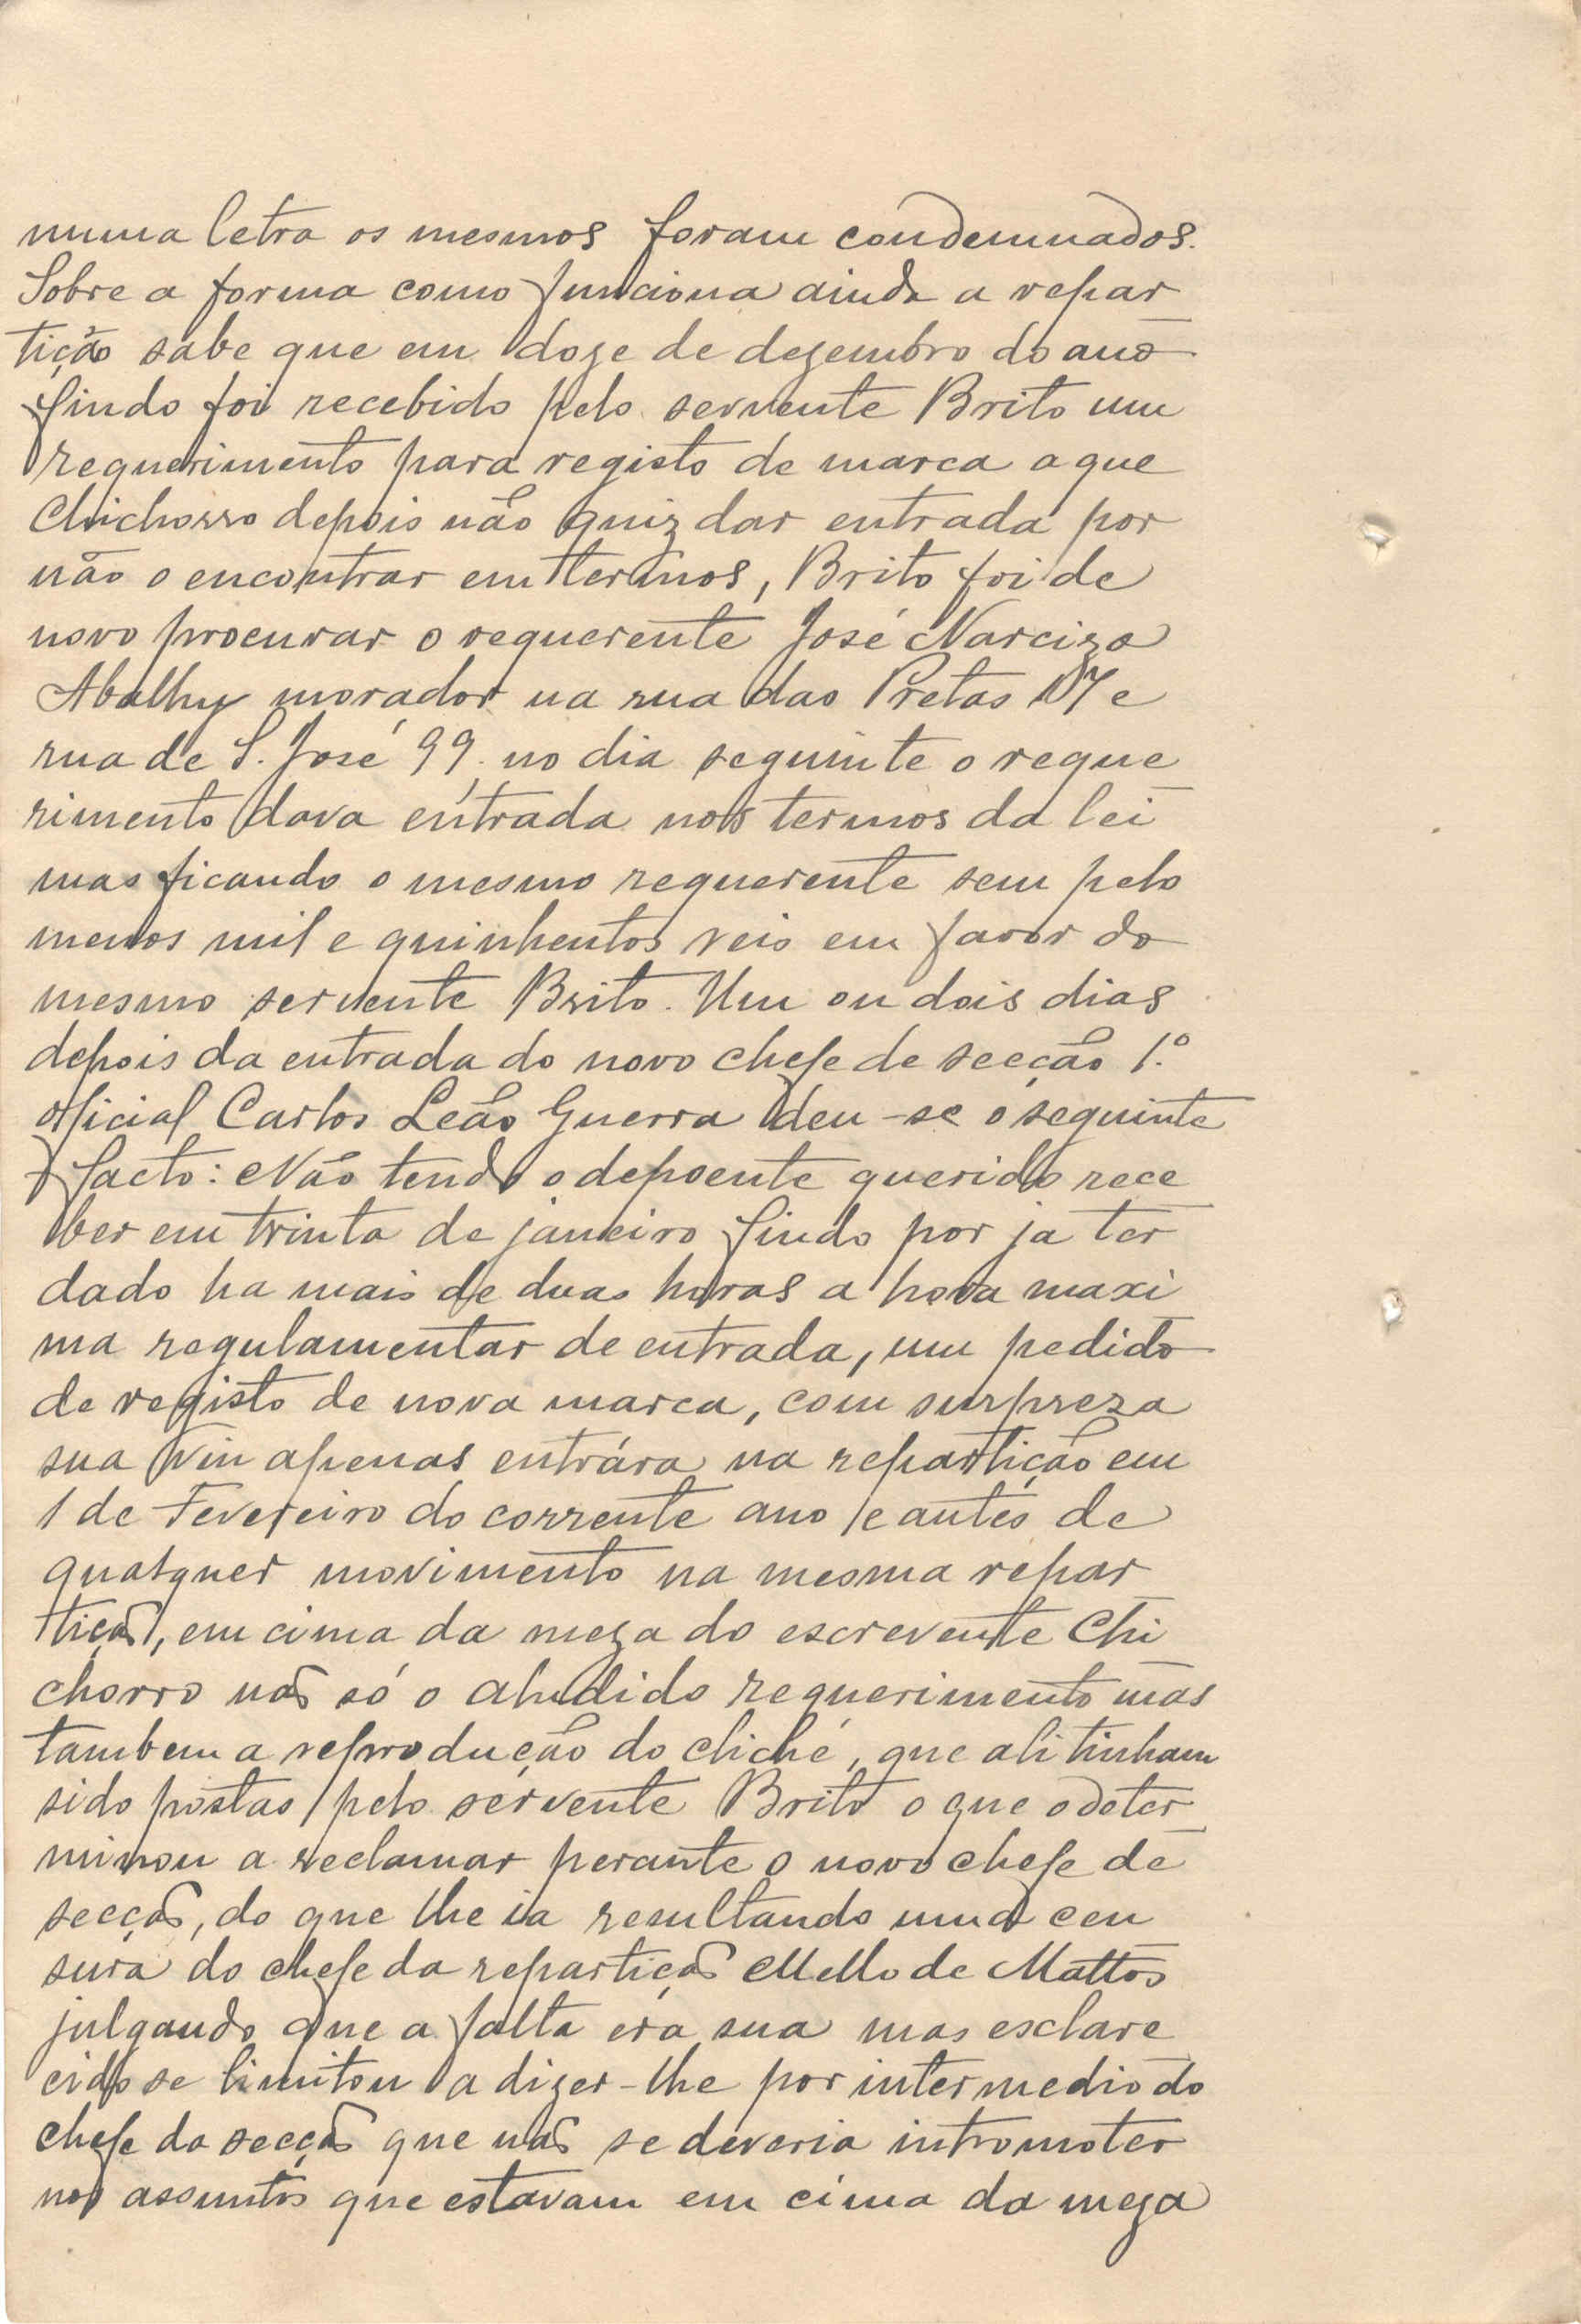 numa letra os mesmos foram condemnados.
Sobre a forma como funciona ainda a repar
tição sabe que em doze de dezembro do ano
findo foi recebido pelo servente Brito um
requerimento para registo de marca a que
Chichorro depois não quiz dar entrada por
não o encontrar em termos, Brito foi de
novo procurar o requerente José Narcizo
morador na rua das Pretas 17 e
rua de S. José 99. no dia seguinte o reque
rimento dava entrada nos termos da lei
mas ficando o mesmo requerente sem pelo
menos mil e quinhentos reis em favor do
mesmo servente Brito. Um ou dois dias
depois da entrada do novo chefe de secção 1.º
oficial Carlos Leão Guerra deu-se o seguinte
facto: Não tendo o depoente querido rece
ber em trinta de janeiro findo por ja ter
dado ha mais de duas horas a hora maxi
ma regulamentar de entrada, um pedido
de registo de nova marca, com surpreza
sua viu apenas entrára na repartição em
1 de Fevereiro do corrente ano e antes de
qualquer movimento na mesma repar
tição, em cima da meza do escrevente Chi
chorro não só o aludido requerimento mas
tambem a reprodução do cliché, que ali tinham
sido postas pelo servente Brito o que o deter
minou a reclamar perante o novo chefe de
secção, do que lhe ia resultando uma cen
sura do chefe da repartição Mello de Mattos
julgando que a falta era sua mas esclare
cido se limitou a dizer-lhe por intermedio do
chefe da secção que não se deveria intrometer
nos assuntos que estavam em cima da meza